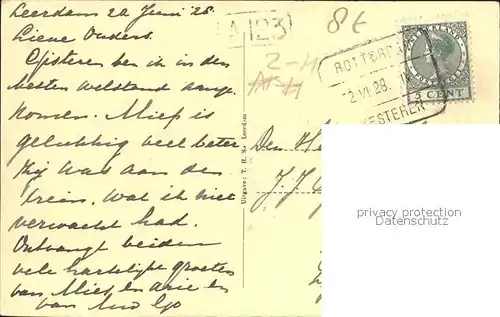 Leerdam 20 Juni 28.
Lieve Ouders.
Gisteren ben ik in den
besten welstand aange-
komen. Miep is
gelukkig veel beter
Zij was aan den
trein, wat ik niet
verwacht had.
Ontvangt beiden
vele hartelijke groeten
van Mies en Arie en
van
A 23
8€
2-H
ROTTERDAM
2 VI 28. IX
KESTEREN
5 CENT
Uitgave: T. H. S. Leerdam
Den
J. J.
privacy protection
Datenschutz